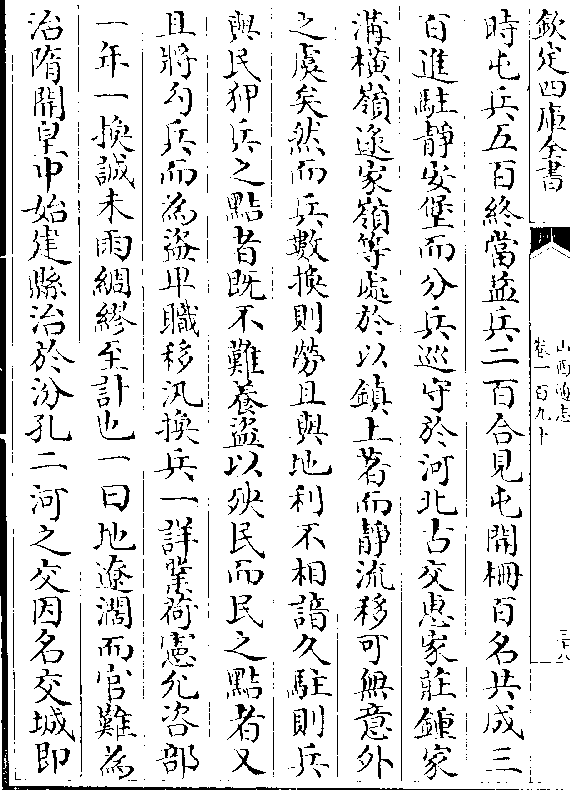 欽定四庫全書
山西通志
卷一百九十
三十八
時屯兵五百終當益兵二百合見屯開柵百名共成三
百進駐靜安堡而分兵巡守於河北古交惠家莊鍾家
溝横嶺逯家嶺等處於以鎮土著而靜流移可無意外
之虞矣然而兵數換則勞且與地利不相諳久駐則兵
與民狎兵之黠者既不難養盜以殃民而民之黠者又
且將勾兵而為盜卑職移汛換兵一詳業荷憲允咨部
一年一換誠未雨綢繆至計也一曰地遼濶而官難為
治隋開皇中始建縣治於汾孔二河之交因名交城即